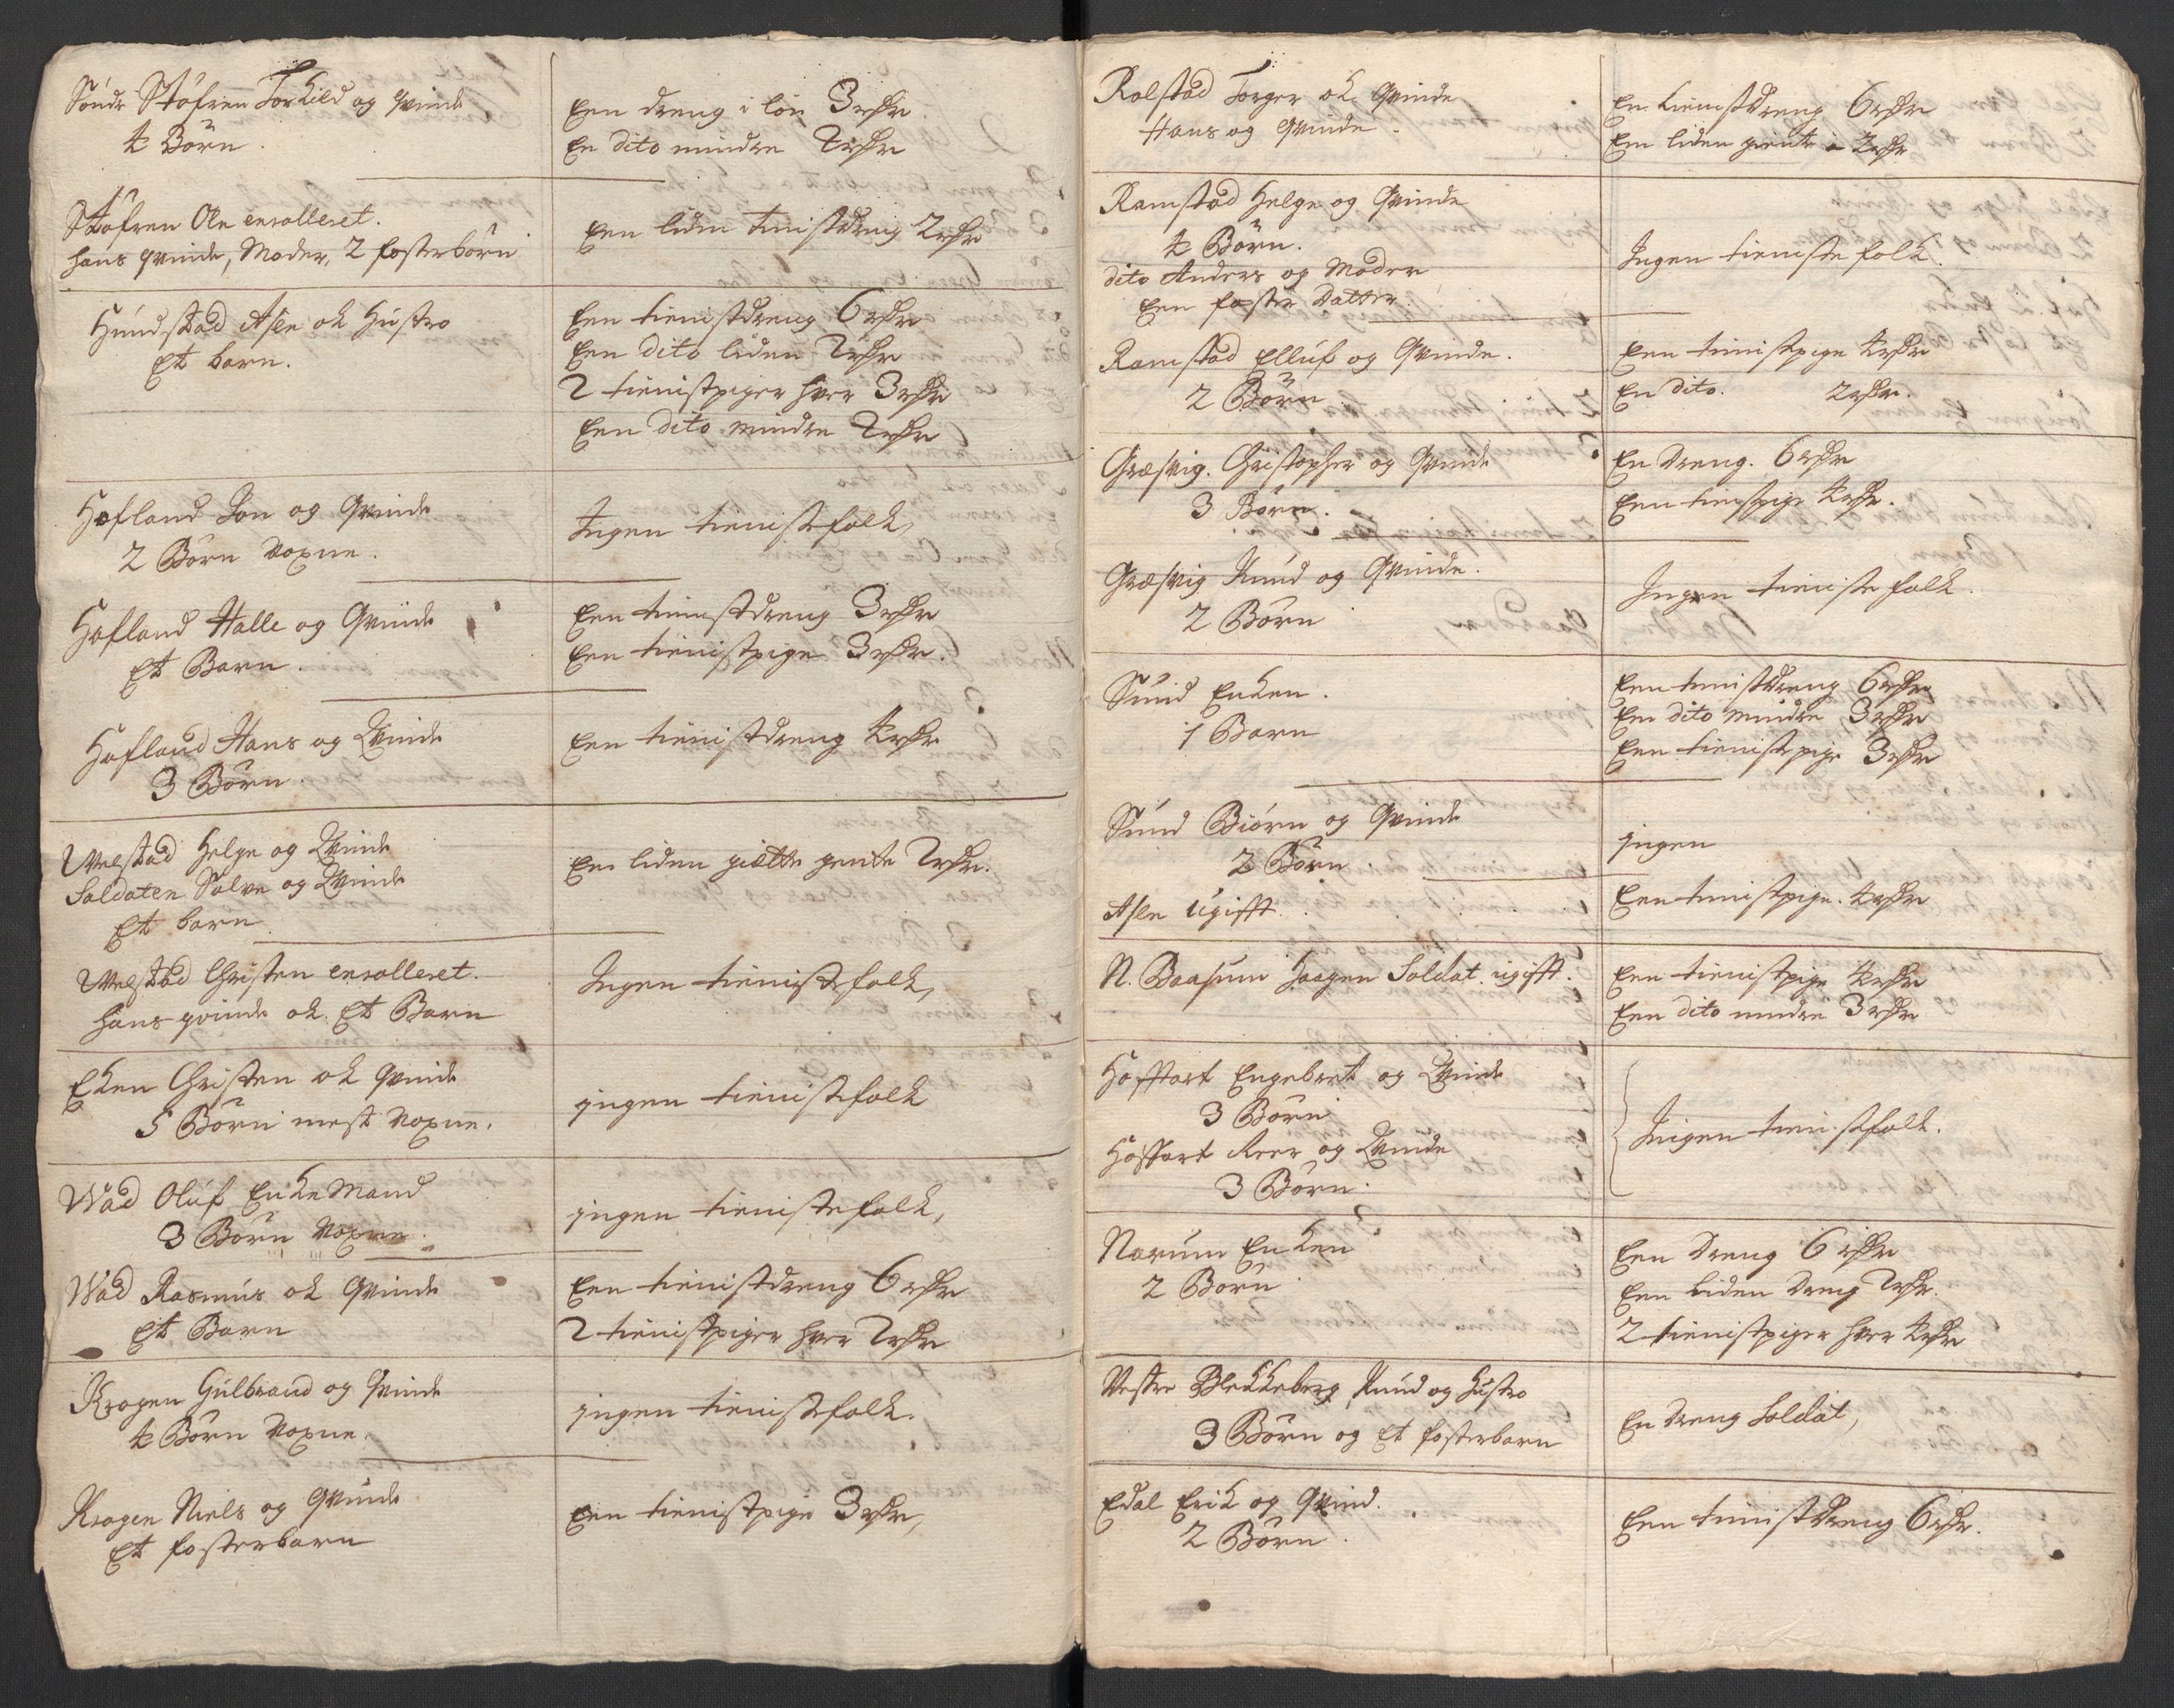 Söndr Støfren Torkild og qvinde
4 Börn.
Een dreng i lön 3 rdr
En dito mindre 2 rdr
Støfren Ole enrolleret.
hans qvinde, Moder, 2 fosterbörn
Een liden tienistdreng 2 rdr
Hundstad Asle ok Hustro
Et barn.
Een tienistdreng 6 rdr
Een dito liden 2 rdr
2 tienistpiger hver 3 rdr
Een dito mindre 2 rdr
Hofland Jon og Qvinde
2 Börn voxne.
Ingen tienistefolk,
Hofland Halle og Qvinde
Et Barn.
Een tienistdreng 3 rdr
Een tienistpige 3 rdr.
Hofland Hans og Qvinde
3 Börn.
Een tienistdreng 4 rdr
Welstad Helge og Qvinde
Soldaten Solve og Qvinde
Et barn
En liden giætte gente 2 rdr.
Welstad Christen enrolleret.
hans qvinde ok Et Barn
Ingen tienistefolk,
Eken Christen ok qvinde
5 Börn mest voxne.
jngen tienistefolk
Wad Oluf EnkeMand
3 Börn voxne.
jngen tienistefolk,
Wad Rasmus ok Qvinde
Et Barn
Een tienistdreng 6 rdr
2 tienistpiger hver 2 rdr
Kragen Gulbrand og Qvinde
4 Börn voxne.
jngen tienistefolk.
Kragen Niels og Qvinde
Et fosterbarn
Een tienistpige 3 rdr,
Rolstad Torger ok Qvinde
Hans og qvinde.
En tienistdreng 6 rdr
Een liden giente 2 rdr
Ramstad Helge og Qvinde
4 Börn.
dito Anders og Moder
Een foster Datter.
Ingen tieniste folk.
Ramstad Elluf og Qvinde.
2 Börn
Een tienistpige 4 rdr
En dito. 2 rdr.
Græsvig. Christopher og Qvinde
3 Börn.
En dreng. 6 rdr
Een tienistpige 4 rdr.
Græsvig Knud og Qvinde.
2 Börn
Ingen tieniste folk.
Sund Enken.
1 Barn
Een tienistdreng 6 rdr
Een dito mindre 3 rdr
Een tienistpige 3 rdr
Sund Biörn og Qvinde
2 Börn
jngen
Asle Ugifft.
Een tienistpige. 4 rdr
N. Baasum Haagen Soldat. ugift.
Een tienistpige 4 rdr
Een dito mindre 3 rdr
Hoffart Engebret og Qvinde
3 Börn
Hoffart Reer og Qvinde
3 Börn.
Ingen tienistfolk.
Narum Enken
2 Börn
Een dreng 6 rdr
Een liden dreng 2 rdr.
2 tienistpiger hver 4 rdr
Vestre Blekkeberg Knud og Hustro
3 Börn og Et fosterbarn
En dreng Soldat,
Edal Erik og Qvind.
2 Börn.
Een tienistdreng 6 rdr.